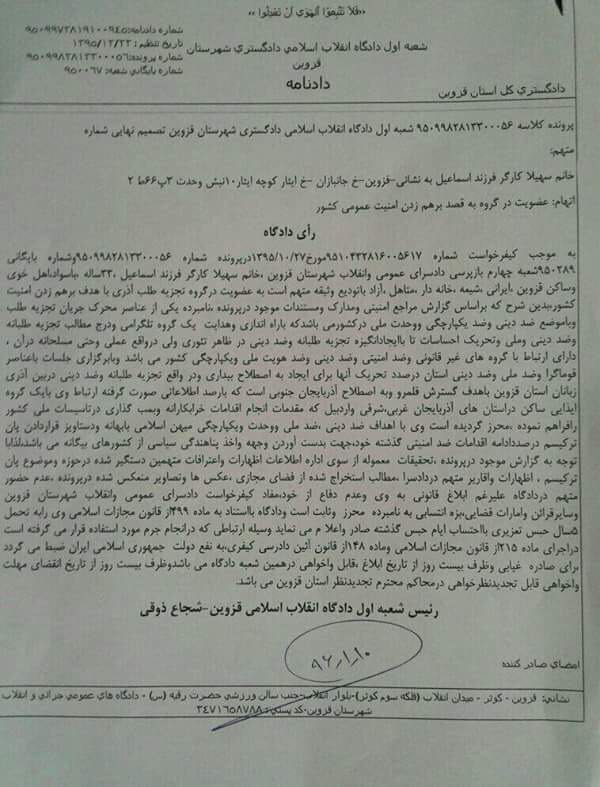 «فلا تتبعوا الهوی ان تعدلوا»
شماره دادنامه: ۹۵۰۹۹۷۲۸۱۹۱۰۰۹۴۵
تاریخ تنظیم: ۱۳۹۵/۱۲/۲۲
شماره پرونده: ۹۵۰۹۹۸۲۸۱۳۳۰۰۰۵۶
شماره بایگانی شعبه: ۹۵۰۰۶۷
شعبه اول دادگاه انقلاب اسلامی دادگستری شهرستان
قزوین
دادنامه
دادگستری کل استان قزوین
پرونده کلاسه ۹۵۰۹۹۸۲۸۱۳۳۰۰۰۵۶ شعبه اول دادگاه انقلاب اسلامی دادگستری شهرستان قزوین تصمیم نهایی شماره
متهم:
خانم سهیلا کارگر فرزند اسماعیل به نشانی-قزوین-خ جانبازان -خ ایثار کوچه ایثار۱۰نبش وحدت ۳پ۶۶ط ۲
اتهام: عضویت در گروه به قصد برهم زدن امنیت عمومی کشور
رأی دادگاه
به موجب کیفرخواست شماره ۹۵۱۰۴۳۲۸۱۶۰۰۵۶۱۷مورخ۱۳۹۵/۱۰/۲۷درپرونده شماره ۹۵۰۹۹۸۲۸۱۳۳۰۰۰۵۶وشماره بایگانی
۹۵۰۲۸۹شعبه چهارم بازپرسی دادسرای عمومی وانقلاب شهرستان قزوین ،خانم سهیلا کارگر فرزند اسماعیل ،۳۳ساله ،باسواد،اهل خوی
وساکن قزوین ،ایرانی ،شیعه ،خانه دار ،متاهل ،آزاد باتودیع وثیقه متهم است به عضویت درگروه تجزیه طلب آذری با هدف برهم زدن امنیت
کشور،بدین شرح که براساس گزارش مراجع امنیتی ومدارک ومستندات موجود درپرونده ،نامبرده یکی از عناصر محرک جریان تجزیه طلب
وباموضع ضد دینی وضد یکپارچگی ووحدت ملی درکشورمی باشدکه باراه اندازی وهدایت یک گروه تلگرامی ودرج مطالب تجزیه طلبانه
وضد دینی وملی وتحریک احساسات تا باایجادانگیزه تجزیه طلبانه وضد دینی در ظاهر تئوری ولی درواقع عملی وحتی مسلحانه درآن ،
دارای ارتباط با گروه های غیر قانونی وضد امنیتی وضد دینی وضد هویت ملی ویکپارچگی کشور می باشد وبابرگزاری جلسات باعناصر
قوماگرا وضد ملی وضد دینی استان درصدد تحریک آنها برای ایجاد به اصطلاح بیداری ودر واقع تجزیه طلبانه وضد دینی دربین آذری
زبانان استان قزوین باهدف گسترش قلمرو وبه اصطلاح آذربایجان جنوبی است که بارصد اطلاعاتی صورت گرفته ارتباط وی بایک گروه
ایذایی ساکن دراستان های آذربایجان غربی،شرقی واردبیل که مقدمات انجام اقدامات خرابکارانه وبمب گذاری درتاسیسات ملی کشور
رافراهم نموده ،محرز گردیده است وی با اهداف ضد دینی ،ضد ملی ووحدت ویکپارچگی میهن اسلامی بابهانه ودستاویز قراردادن پان
ترکیسم درصددادامه اقدامات ضد امنیتی گذشته خود،جهت بدست آوردن وجهه واخذ پناهندگی سیاسی از کشورهای بیگانه می باشد،لذابا
توجه به گزارش موجود درپرونده ،تحقیقات معموله از سوی اداره اطلاعات اظهارات واعترافات متهمین دستگیر شده درحوزه وموضوع پان
ترکیسم ، اظهارات واقاریر متهم دردادسرا ،مطالب استخراج شده از فضای مجازی ،عکس ها وتصاویر منعکس شده درپرونده ،عدم حضور
متهم دردادگاه علیرغم ابلاغ قانونی به وی وعدم دفاع از خود،مفاد کیفرخواست دادسرای عمومی وانقلاب شهرستان قزوین
وسایرقرائن وامارات قضایی،بزه انتسابی به نامبرده محرز وثابت است ودادگاه بااستناد به ماده ۴۹۹از قانون مجازات اسلامی وی رابه تحمل
۵سال حبس تعزیری بااحتساب ایام حبس گذشته صادر واعلام می نماید وسیله ارتباطی که درانجام جرم مورد استفاده قرار می گرفته است
دراجرای ماده ۲۱۵از قانون مجازات اسلامی وماده ۱۴۸از قانون آئین دادرسی کیفری،به نفع دولت جمهوری اسلامی ایران ضبط می گردد
برای صادره غیابی وظرف بیست روز از تاریخ ابلاغ ،قابل واخواهی درهمین شعبه دادگاه می باشدوظرف بیست روز از تاریخ انقضای مهلت
واخواهی قابل تجدیدنظرخواهی درمحاکم محترم تجدیدنظر استان قزوین می باشد.
رئیس شعبه اول دادگاه انقلاب اسلامی قزوین-شجاع ذوقی
۹۶,۱,۱۰
امضای صادر کننده
نشانی: قزوین - کوثر - میدان انقلاب (فلکه سوم کوثر)-بلوار انقلاب-جنب سالن ورزشی حضرت رقیه (س) - دادگاه های عمومی جزائی و انقلاب
شهرستان قزوین-کد پستی: ۳۴۷۱۶۵۸۷۸۸